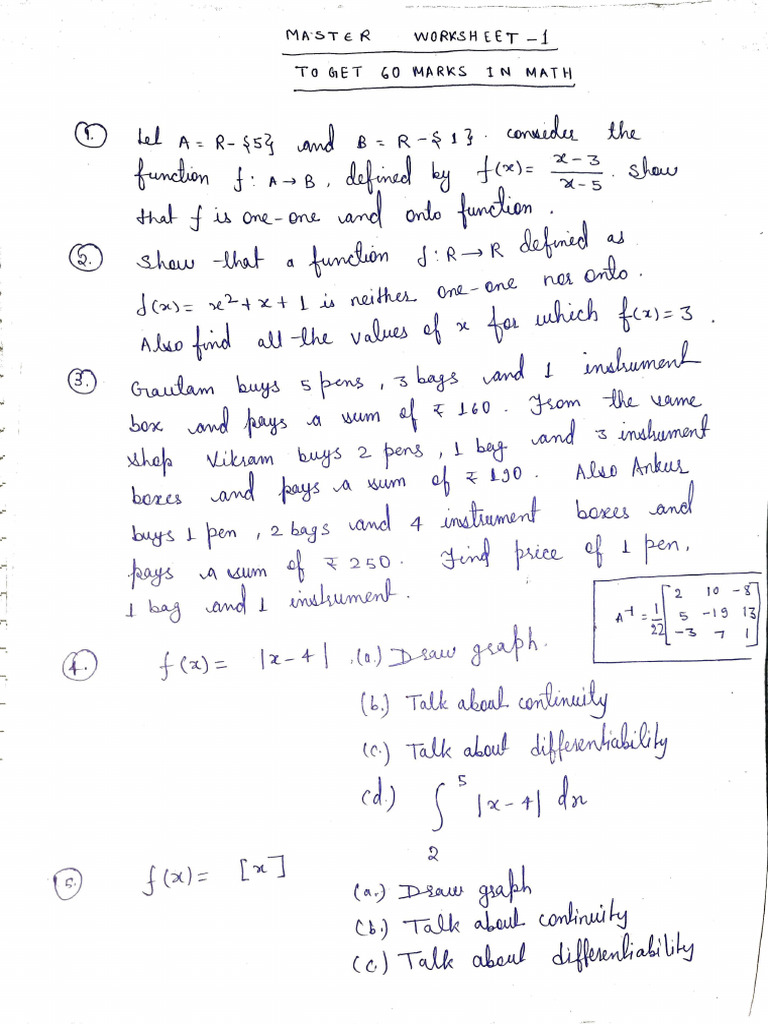 MASTER WORKSHEET-1
TO GET 60 MARKS IN MATH
1. Let A = R-{5} and B = R-{1}. consider the
function f: A→B, defined by f(x) = (x-3)/(x-5). show
that f is one-one and onto function.
2. Show that a function f: R→R defined as
f(x) = x²+x+1 is neither one-one nor onto.
Also find all the values of x for which f(x)=3.
3. Gautam buys 5 pens, 3 bags and 1 instrument
box and pays a sum of ₹ 160. From the same
shop Vikram buys 2 pens, 1 bag and 3 instrument
boxes and pays a sum of ₹ 190. Also Ankur
buys 1 pen, 2 bags and 4 instrument boxes and
pays a sum of ₹ 250. Find price of 1 pen,
1 bag and 1 instrument.
A⁻¹ = 1/22 [2 10 -8
5 -19 13
-3 7 1]
4. f(x) = |x-4|. (a.) Draw graph.
(b.) Talk about continuity
(c.) Talk about differentiability
(d.) ∫₂⁵ |x-4| dx
5. f(x) = [x]
(a.) Draw graph
(b.) Talk about continuity
(c.) Talk about differentiability